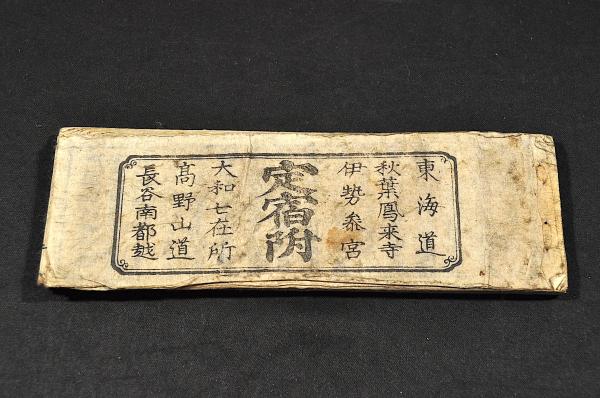 東海道
秋葉鳳来寺
伊勢参宮
定宿附
大和七在所
髙野山道
長谷南都越